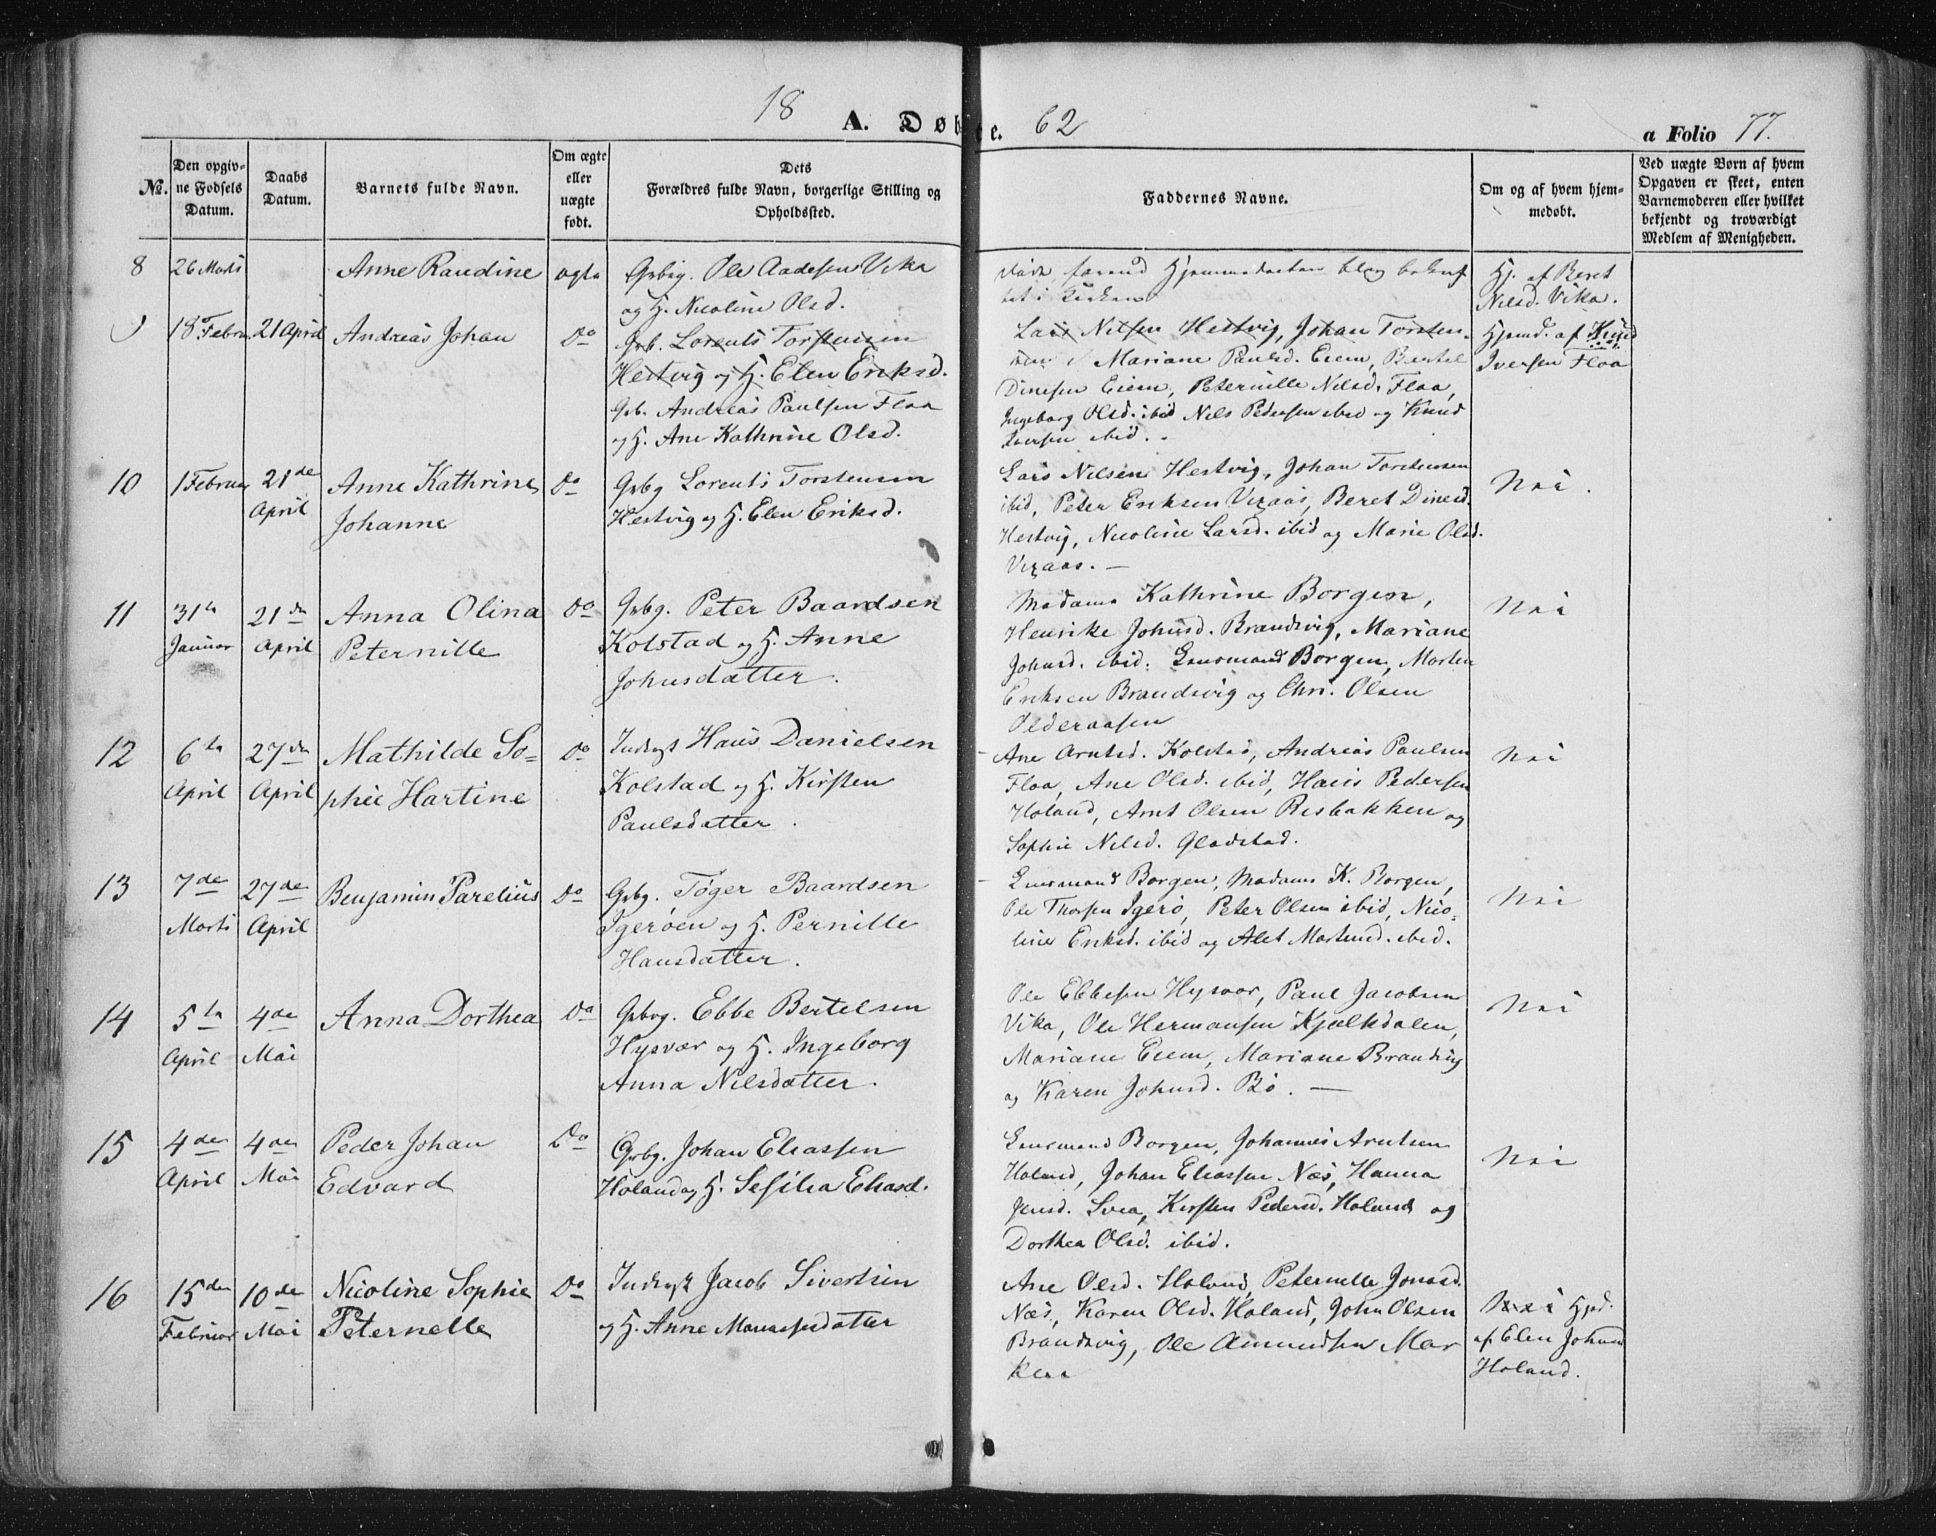 18 A. Døbte. 62
a Folio 77.
No.
Den opgiv-
ne Fødsels
Datum.
Daabs
Datum.
Barnets fulde Navn.
Om ægte
eller
uægte
født.
Dets
Forældres fulde Navn, borgerlige Stilling og
Opholdssted.
Faddernes Navne.
Om og af hvem hjem-
medøbt.
Ved uægte Børn af hvem
Opgaven er skeet, enten
Barnemoderen eller hvilket
bekjendt og troværdigt
Medlem af Menigheden.
8 26 Marts Anne Randine ægte Grbg. Ole Aadesen Vika
og H. Nicoline Olsd.
døde forend Hjemmedaaben blev bekræf
tet i Kirken
Hj. af Beret
Nilsd. Vika.
9 18 Febru 21 April Andreas Johan Do
Grb. Lorents Torstensen
Hestvig og H. Elen Eriksd.
Grb. Andreas Paulsen Floa
og H. Ane Kathrine Olsd.
Lars Nilsen Hestvig, Johan Torsten
Mariane Paulsd. Eiem, Bertel
Dinesen Eiem, Peternille Nilsd. Floa,
Ingeborg Olsd. ibid Nils Pedersen ibid og Knud
Iversen ibid.
Hjemd. af Knud
Iversen Floa
10 1 Februar 21de
April
Anne Kathrine
Johanne
Do
Grbg Lorents Torstensen
Hestvig og H. Elen Eriksd.
Lars Nilsen Hestvig, Johan Torstensen
ibid, Peter Eriksen Vegaas, Beret Dinesd.
Hestvig, Nicoline Larsd. ibid og Marie Olsd.
Vegaas. —
Nei.
11 31te
Januar
21de
April
Anna Olina
Peternille
Do
Grbg. Peter Baardsen
Kolstad og H. Anne
Johnsdatter.
Madame Kathrine Borgen,
Henrike Johnsd. Brandsvig, Mariane
Johnsd. ibid. Lensmand Borgen, Morten
Eriksen Brandsvig og Chri. Olsen
Olderaasen
Nei
12 6te
April
27de
April
Mathilde So=
phie Hartine
Do
Inderst Hans Danielsen
Kolstad og H. Kirsten
Paulsdatter.
Ane Arntsd. Kolstad, Andreas Paulsen
Floa, Ane Olsd. ibid, Hans Pedersen
Holand, Arnt Olsen Risbakken og
Sophie Nilsd. Gladstad.
Nei
13 7de
Marts
27de
April
Benjamin Parelius
Do
Grbg. Tøger Baardsen
Igerøen og H. Pernille
Hansdatter.
Lensmand Borgen, Madame K. Borgen,
Ole Thorsen Igerø, Peter Olsen ibid, Nico=
line Eriksd. ibid og Alet Mortensd. ibid.
Nei
14 5te
April
4de
Mai
Anna Dorthea
Do
Grbg. Ebbe Bertelsen
Hysvær og H. Ingeborg
Anna Nilsdatter.
Ole Ebbesen Hysvær, Paul Jacobsen
Vika, Ole Hermansen Kjælkdalen,
Mariane Eiem, Mariane Brandsvig
og Karen Johnsd. Bø. —
Nei
15 4de
April
4de
Mai
Peder Johan
Edvard
Do
Grbg. Johan Eliassen
Holand og H. Sesilia Eliasd.
Lensmand Borgen, Johannes Arntsen
Holand, Johan Eliassen Næs, Hanna
Jensd. Svea, Kirsten Pedersd. Holand og
Dorthea Olsd. ibid.
Nei
16 15de
Februar
10de
Mai
Nicoline Sophie
Peternelle
Do
Inderst Jacob Sivertsen
og H. Anne Manassesdatter
Ane Olsd. Holand, Peternelle Jonasd.
Næs, Karen Olsd. Holand, John Olsen
Brandsvig, Ole Amundsen Mar
ken
Nei Hjd.
af Elen Johnsd
Holand.